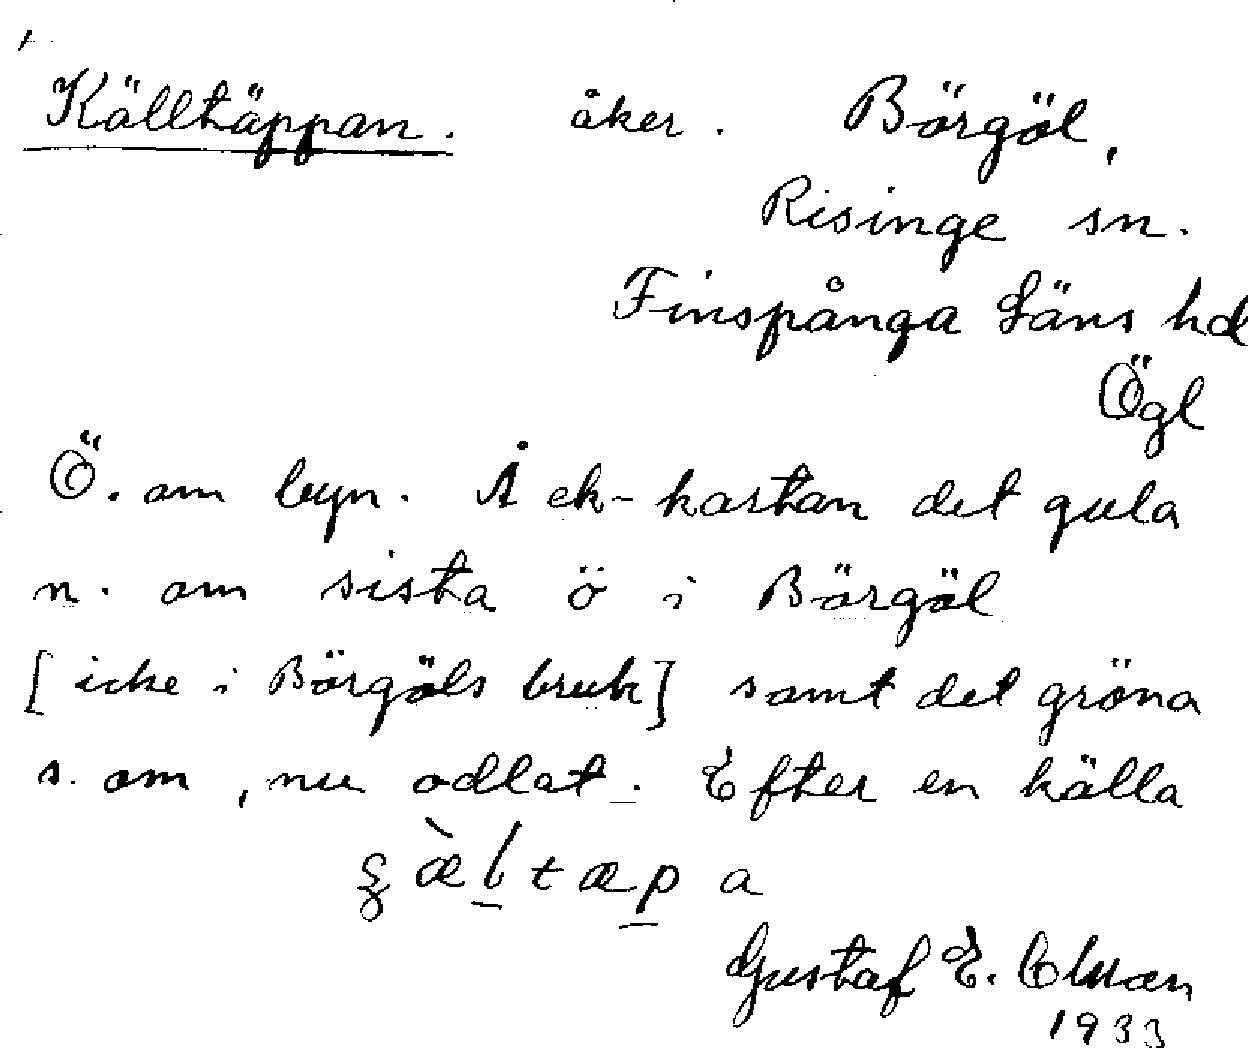 Källtäppan. åker. Börgöl,
Risinge sn.
Finspånga Läns hd
Ögl
Ö. om byn. Å ek-kartan det gula
n. om sista ö i Börgöl
[icke i Börgöls bruk] samt det gröna
s. om, nu odlat. Efter en källa
Gustaf E.
1933